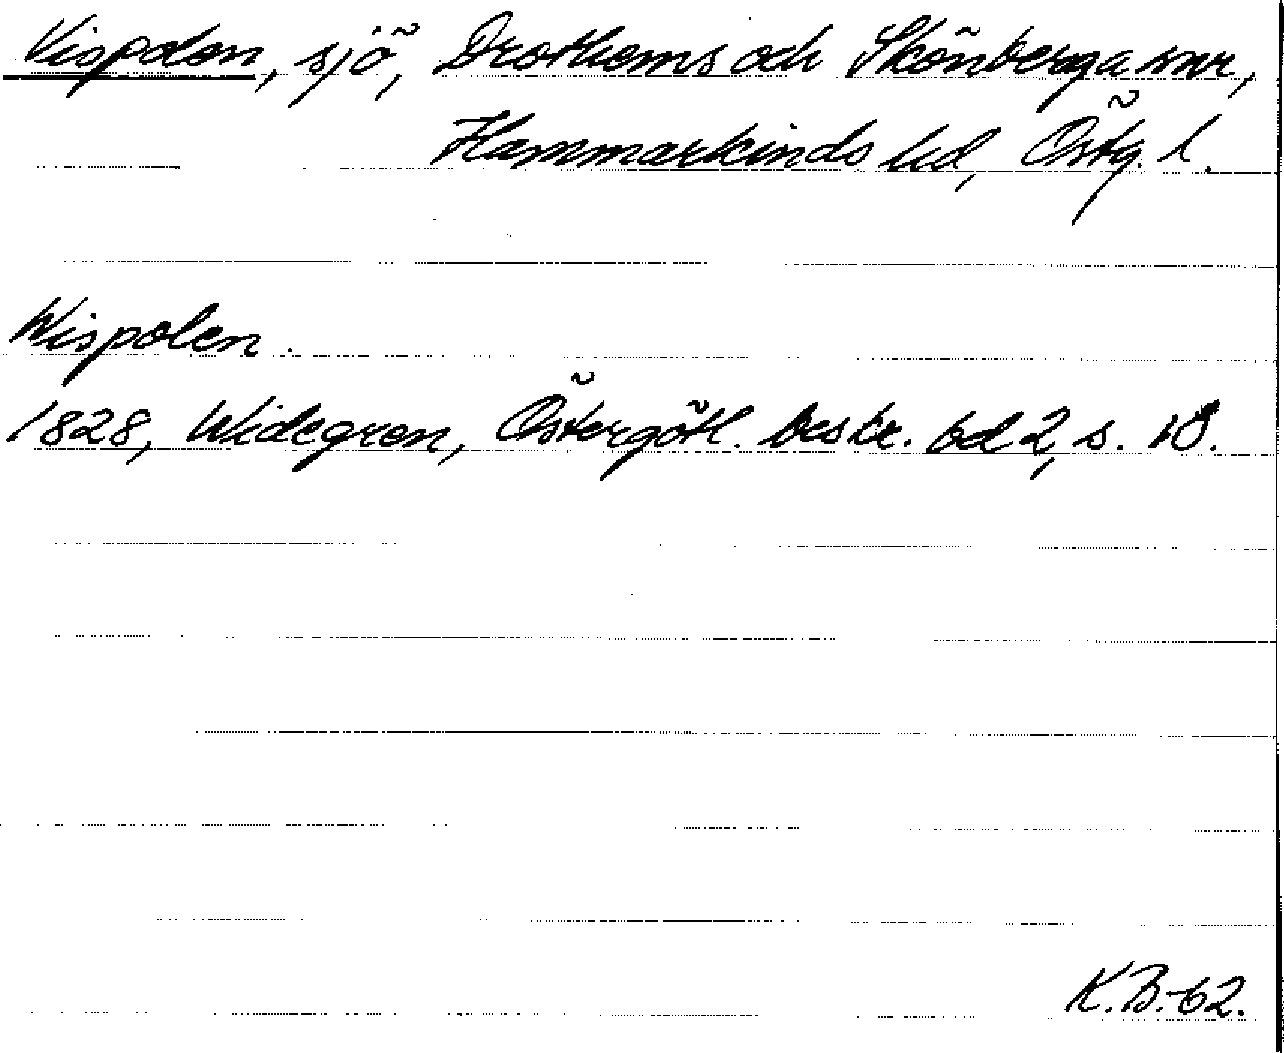 Vispolen, sjö, Drothems och Skönberga snr,
Hammarkinds hd, Östg. l.
Wispolen.
1828, Widegren, Östergötl. beskr. bd 2, s. 18.
K.B.-62.